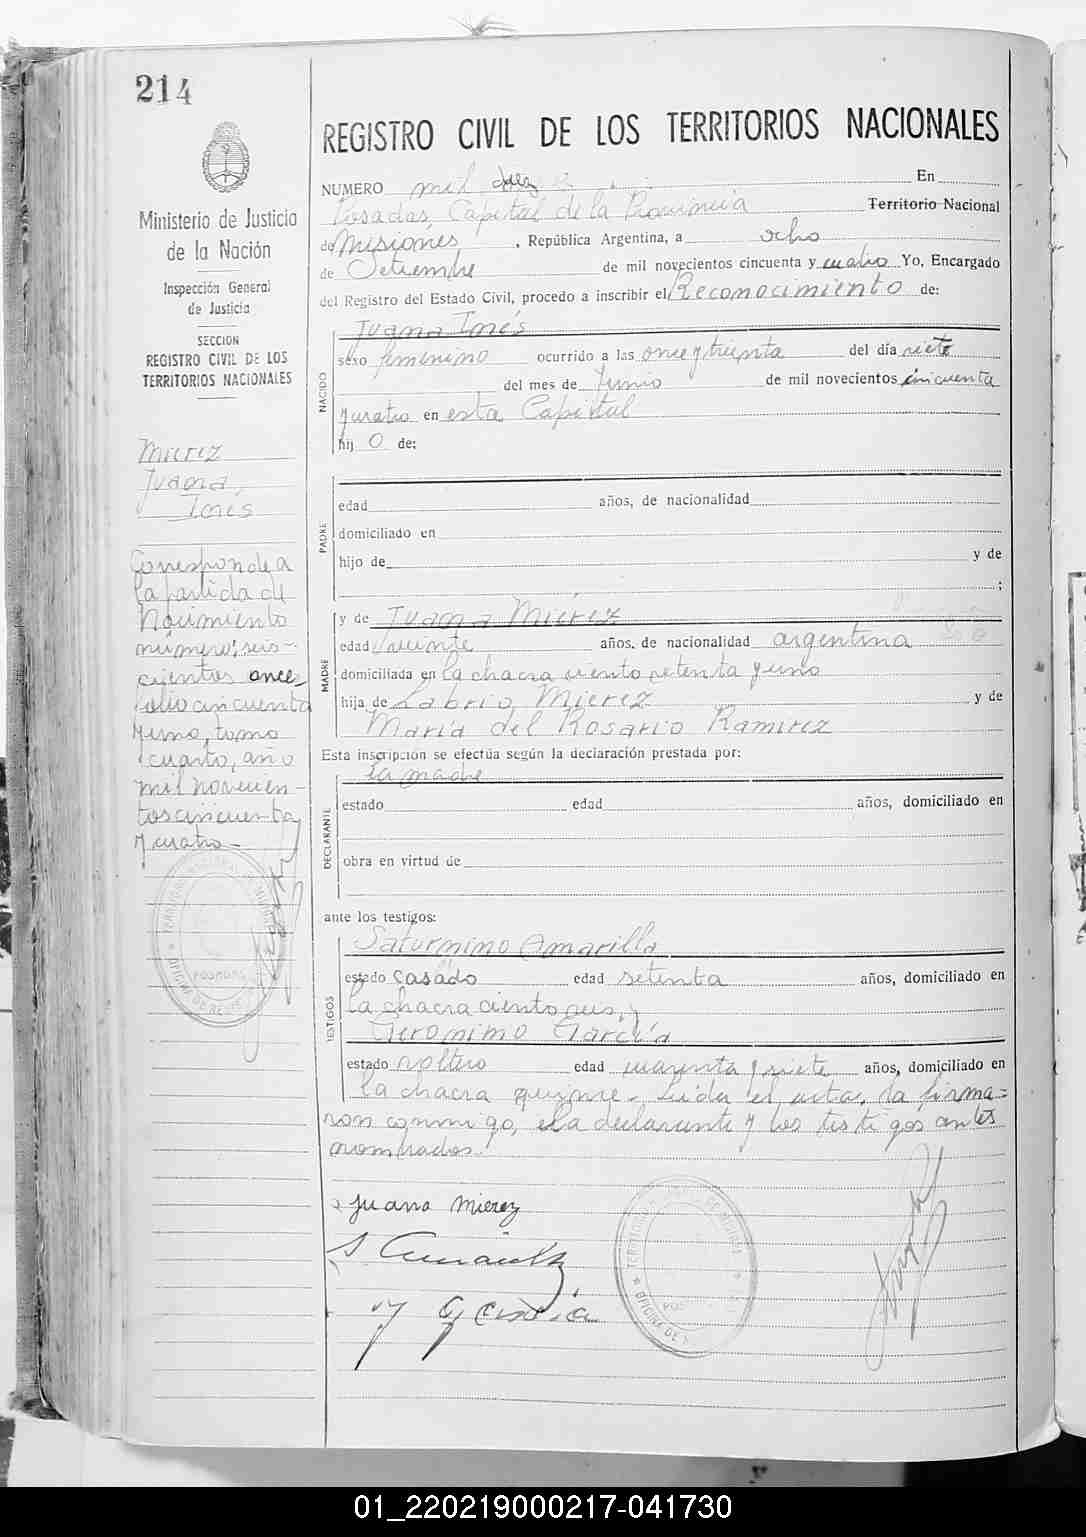 214
REGISTRO CIVIL DE LOS TERRITORIOS NACIONALES
Ministerio de Justicia
de la Nación
Inspección General
de Justicia
SECCION
REGISTRO CIVIL DE LOS
TERRITORIOS NACIONALES
Mierez
Juana,
Inés
Corresponde a
la partida de
Nacimiento
número: seis-
cientos once,
folio cincuenta
y uno, tomo
cuarto, año
mil novecien-
tos cincuenta
y cuatro-
NUMERO mil diez En
Posadas Capital de la Provincia Territorio Nacional
de Misiones, República Argentina, a ocho
de Setiembre de mil novecientos cincuenta y cuatro Yo, Encargado
del Registro del Estado Civil, procedo a inscribir el Reconocimiento de:
Juana Inés
NACIDO
sexo femenino ocurrido a las once y treinta del día siete
del mes de Junio de mil novecientos cincuenta
y cuatro en esta Capital
hij o de:
PADRE
edad años, de nacionalidad
domiciliado en
hijo de y de
;
MADRE
y de Juana Mierez
edad veinte años, de nacionalidad argentina
domiciliada en la chacra ciento setenta y uno
hija de Labrio Mierez y de
María del Rosario Ramirez
Esta inscripción se efectúa según la declaración prestada por:
la madre
DECLARANTE
estado edad años, domiciliado en
obra en virtud de
ante los testigos:
Saturnino Amarilla
TESTIGOS
estado casado edad setenta años, domiciliado en
la chacra ciento seis, y
Geronimo García
estado soltero edad cuarenta y siete años, domiciliado en
la chacra quince- Leida el acta, la firma=
ron conmigo, la declarante y los testigos antes
nombrados.
Juana Mierez
S Amarilla
J Garcia
POSADAS
OFICINA DE
TERRITORIO
OFICINA DE
01_220219000217-041730